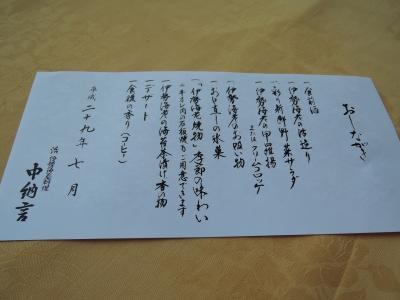 おしながき
一 食前酒
一 伊勢海老の活造り
一 彩り新鮮野菜サラダ
一 伊勢海老の甲羅揚
又は クリームコロッケ
一 伊勢海老のお吸い物
一 お口直しの氷菓
一 「伊勢海老焼物」季節の味わい
牛ヒレ肉の石板焼もご用意できます
一 伊勢海老の海苔茶漬け 香の物
一 デザート
一 食後の香り(コーヒー)
平成二十九年七月
活伊勢海老料理
中納言